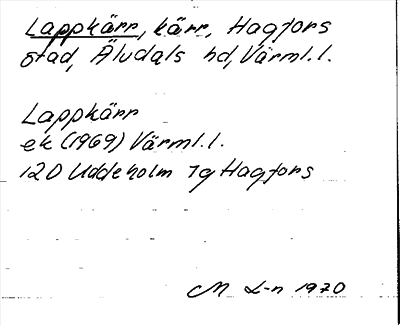 Lappkärr, kärr, Hagfors
stad, Äludals hd, Värml.l.
Lappkärr
ek (1969) Värml.l.
12D Uddeholm 7g Hagfors
M L-n 1970